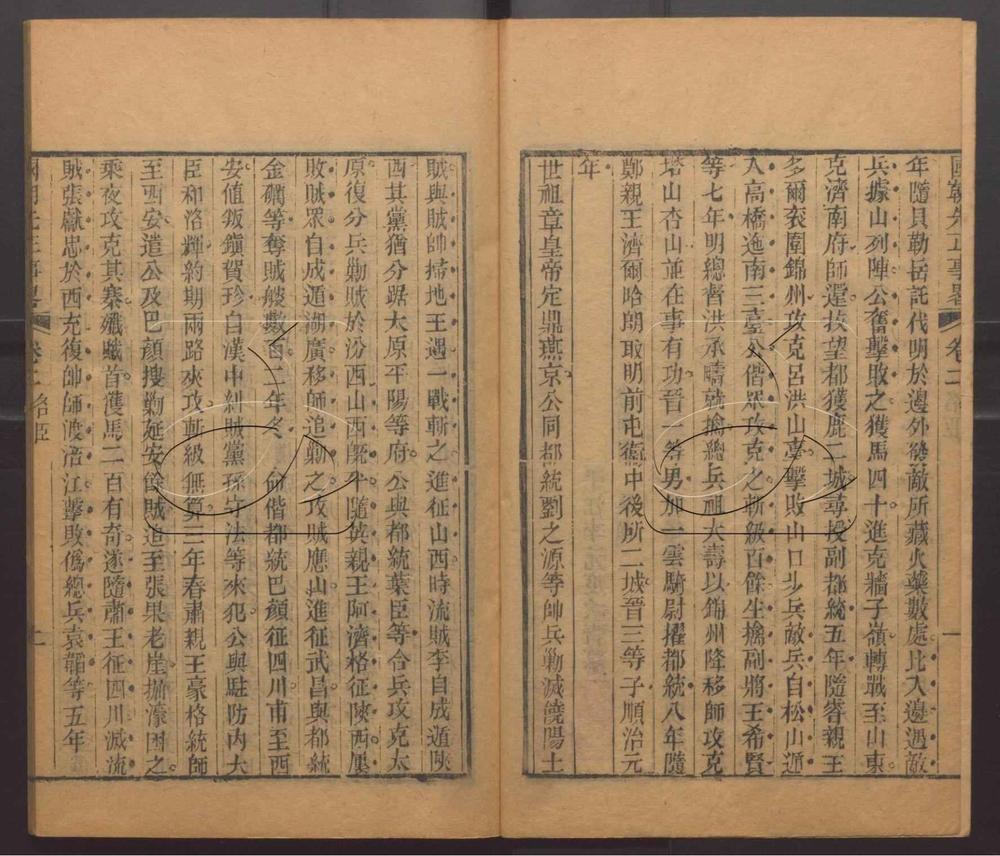 國朝先正事畧 卷二 名臣 一
年隨貝勒岳託代明於邊外發敵所藏火藥數處比入邊遇敵
兵據山列陣公奮擊敗之獲馬四十進克牆子嶺轉戰至山東
克濟南府師還抜望都獲鹿二城尋授副都統五年隨睿親王
多爾衮圍錦州攻克呂洪山臺擊敗山口步兵敵兵自松山遁
入高橋迤南三臺公偕眾攻克之斬級百餘生擒副將王希賢
等七年明總督洪承疇就擒總兵祖大壽以錦州降移師攻克
塔山杏山並在事有功晉一等男加一雲騎尉擢都統八年隨
鄭親王濟爾哈朗取明前屯衞中後所二城晉三等子順治元
年
世祖章皇帝定鼎燕京公同都統劉之源等帥兵勦滅饒陽土
賊與賊帥掃地王遇一戰斬之進征山西時流賊李自成遁陝
西其黨猶分踞太原平陽等府公與都統葉臣等合兵攻克太
原復分兵勦賊於汾西山西旣平隨英親王阿濟格征陝西屢
敗賊眾自成遁湖廣移師追勦之攻賊應山進征武昌與都統
金礪等奪賊艘數百二年冬 命偕都統巴顏征四川甫至西
安值叛鎭賀珍自漢中糾賊黨孫守法等來犯公與駐防內大
臣和洛輝約期兩路夾攻斬級無算三年春肅親王豪格統師
至西安遣公及巴顏搜勦延安餘賊追至張果老崖掘濠困之
乘夜攻克其寨殲賊首獲馬二百有奇遂隨肅王征四川滅流
賊張獻忠於西充復帥師渡涪江擊敗僞總兵袁韜等五年
國朝先正事畧 卷二 名臣 二